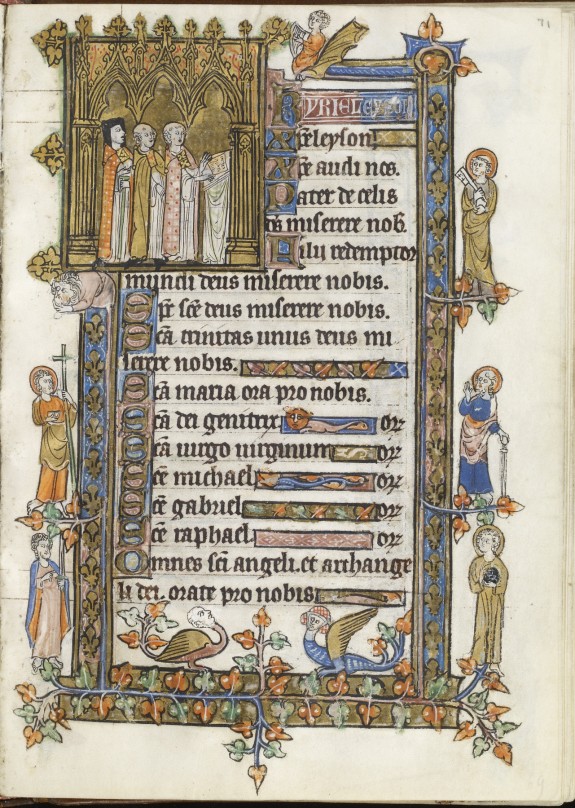 71
KYRIELEYSON
xp̄eleyson
xp̄e audi nos.
Pater de celis
ds̄ miserere nob̄.
Fili redemptor
mundi deus miserere nobis.
Sp̄c sc̄e deus miserere nobis.
Sc̄a trinitas unus deus mi
serere nobis.
Sc̄a maria ora pro nobis.
Sc̄a dei genitrix or
Sc̄a uirgo uirginum or
Sc̄e michael or
Sc̄e gabriel or
Sc̄e raphael or
Omnes sc̄i angeli et archange
li dei. orate pro nobis